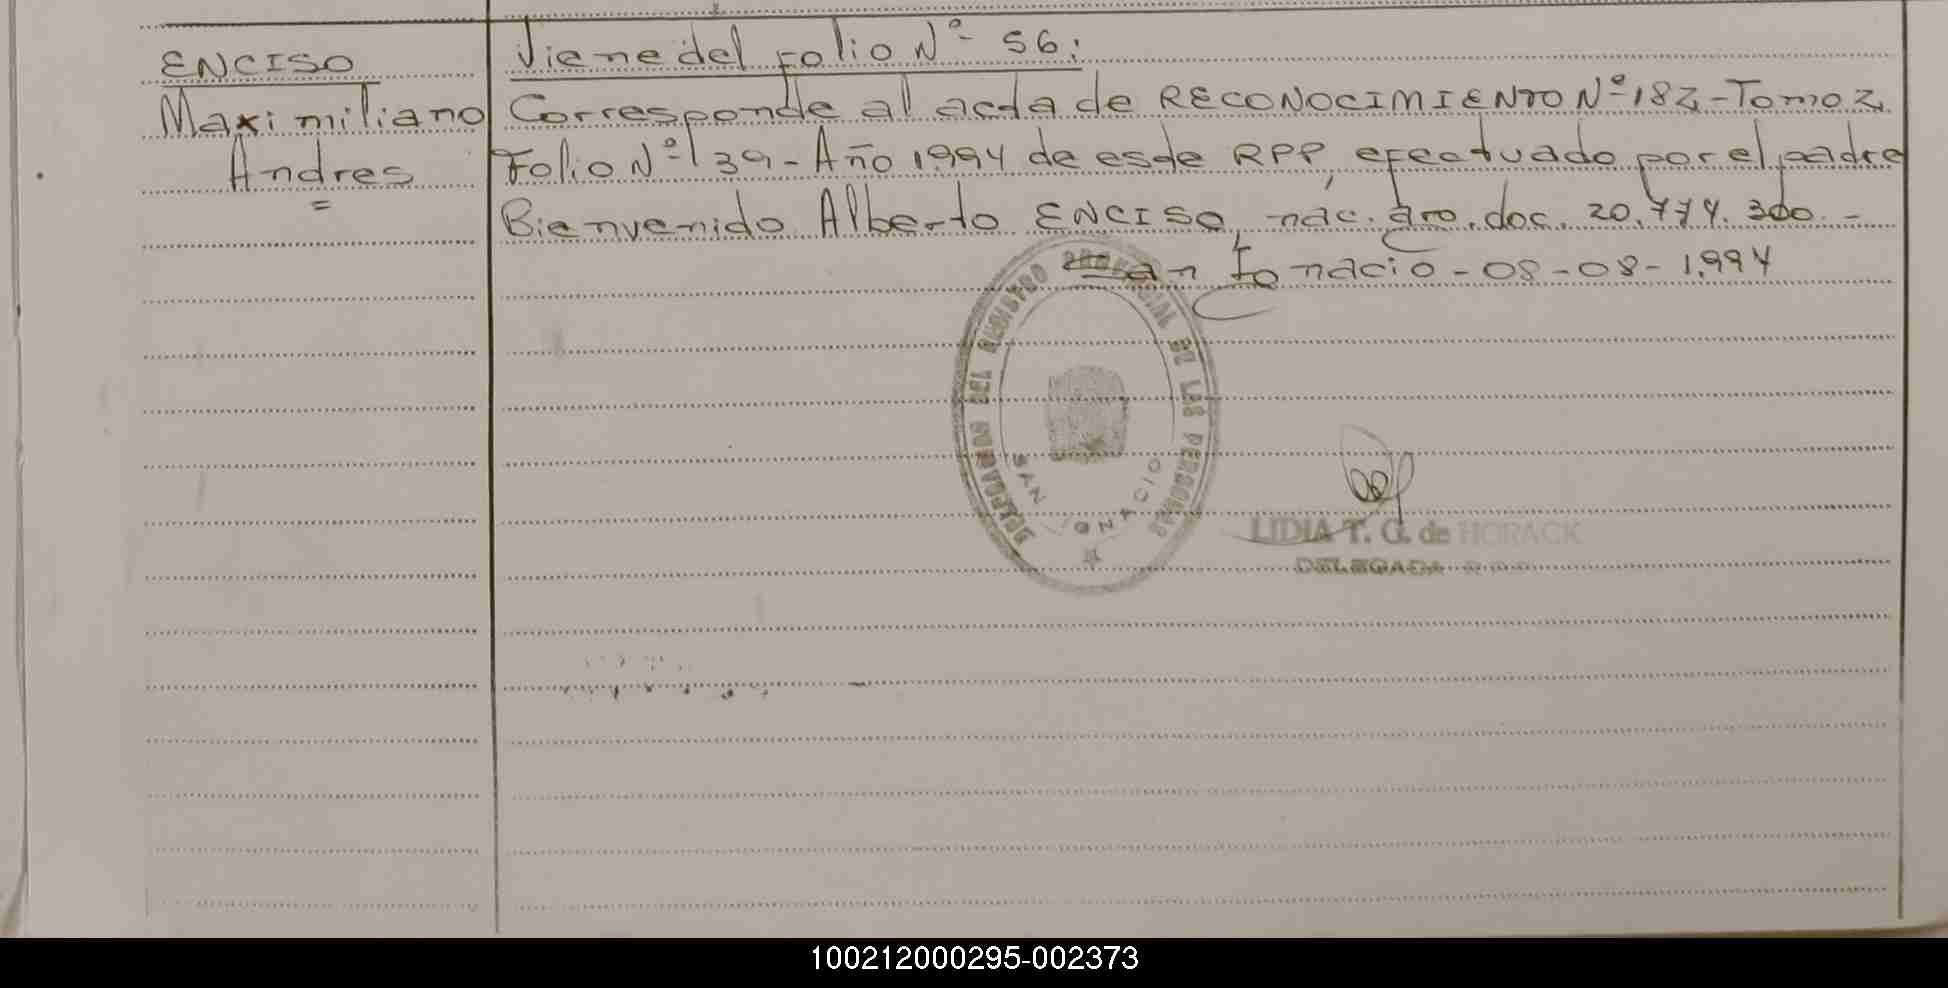 ENCISO
Maximiliano
Andres
=
Viene del folio Nº 56:
Corresponde al acta de RECONOCIMIENTO Nº 182 - Tomo 2
Folio Nº 139 - Año 1994 de este RPP, efectuado por el padre
Bienvenido Alberto ENCISO, nac. arg. doc. 20.774.300.-
San Ignacio - 08-08-1.994
DELEGACION DEL REGISTRO PROVINCIAL DE LAS PERSONAS
SAN IGNACIO
LIDIA T. G. de HORACK
DELEGADA R.P.P.
100212000295-002373